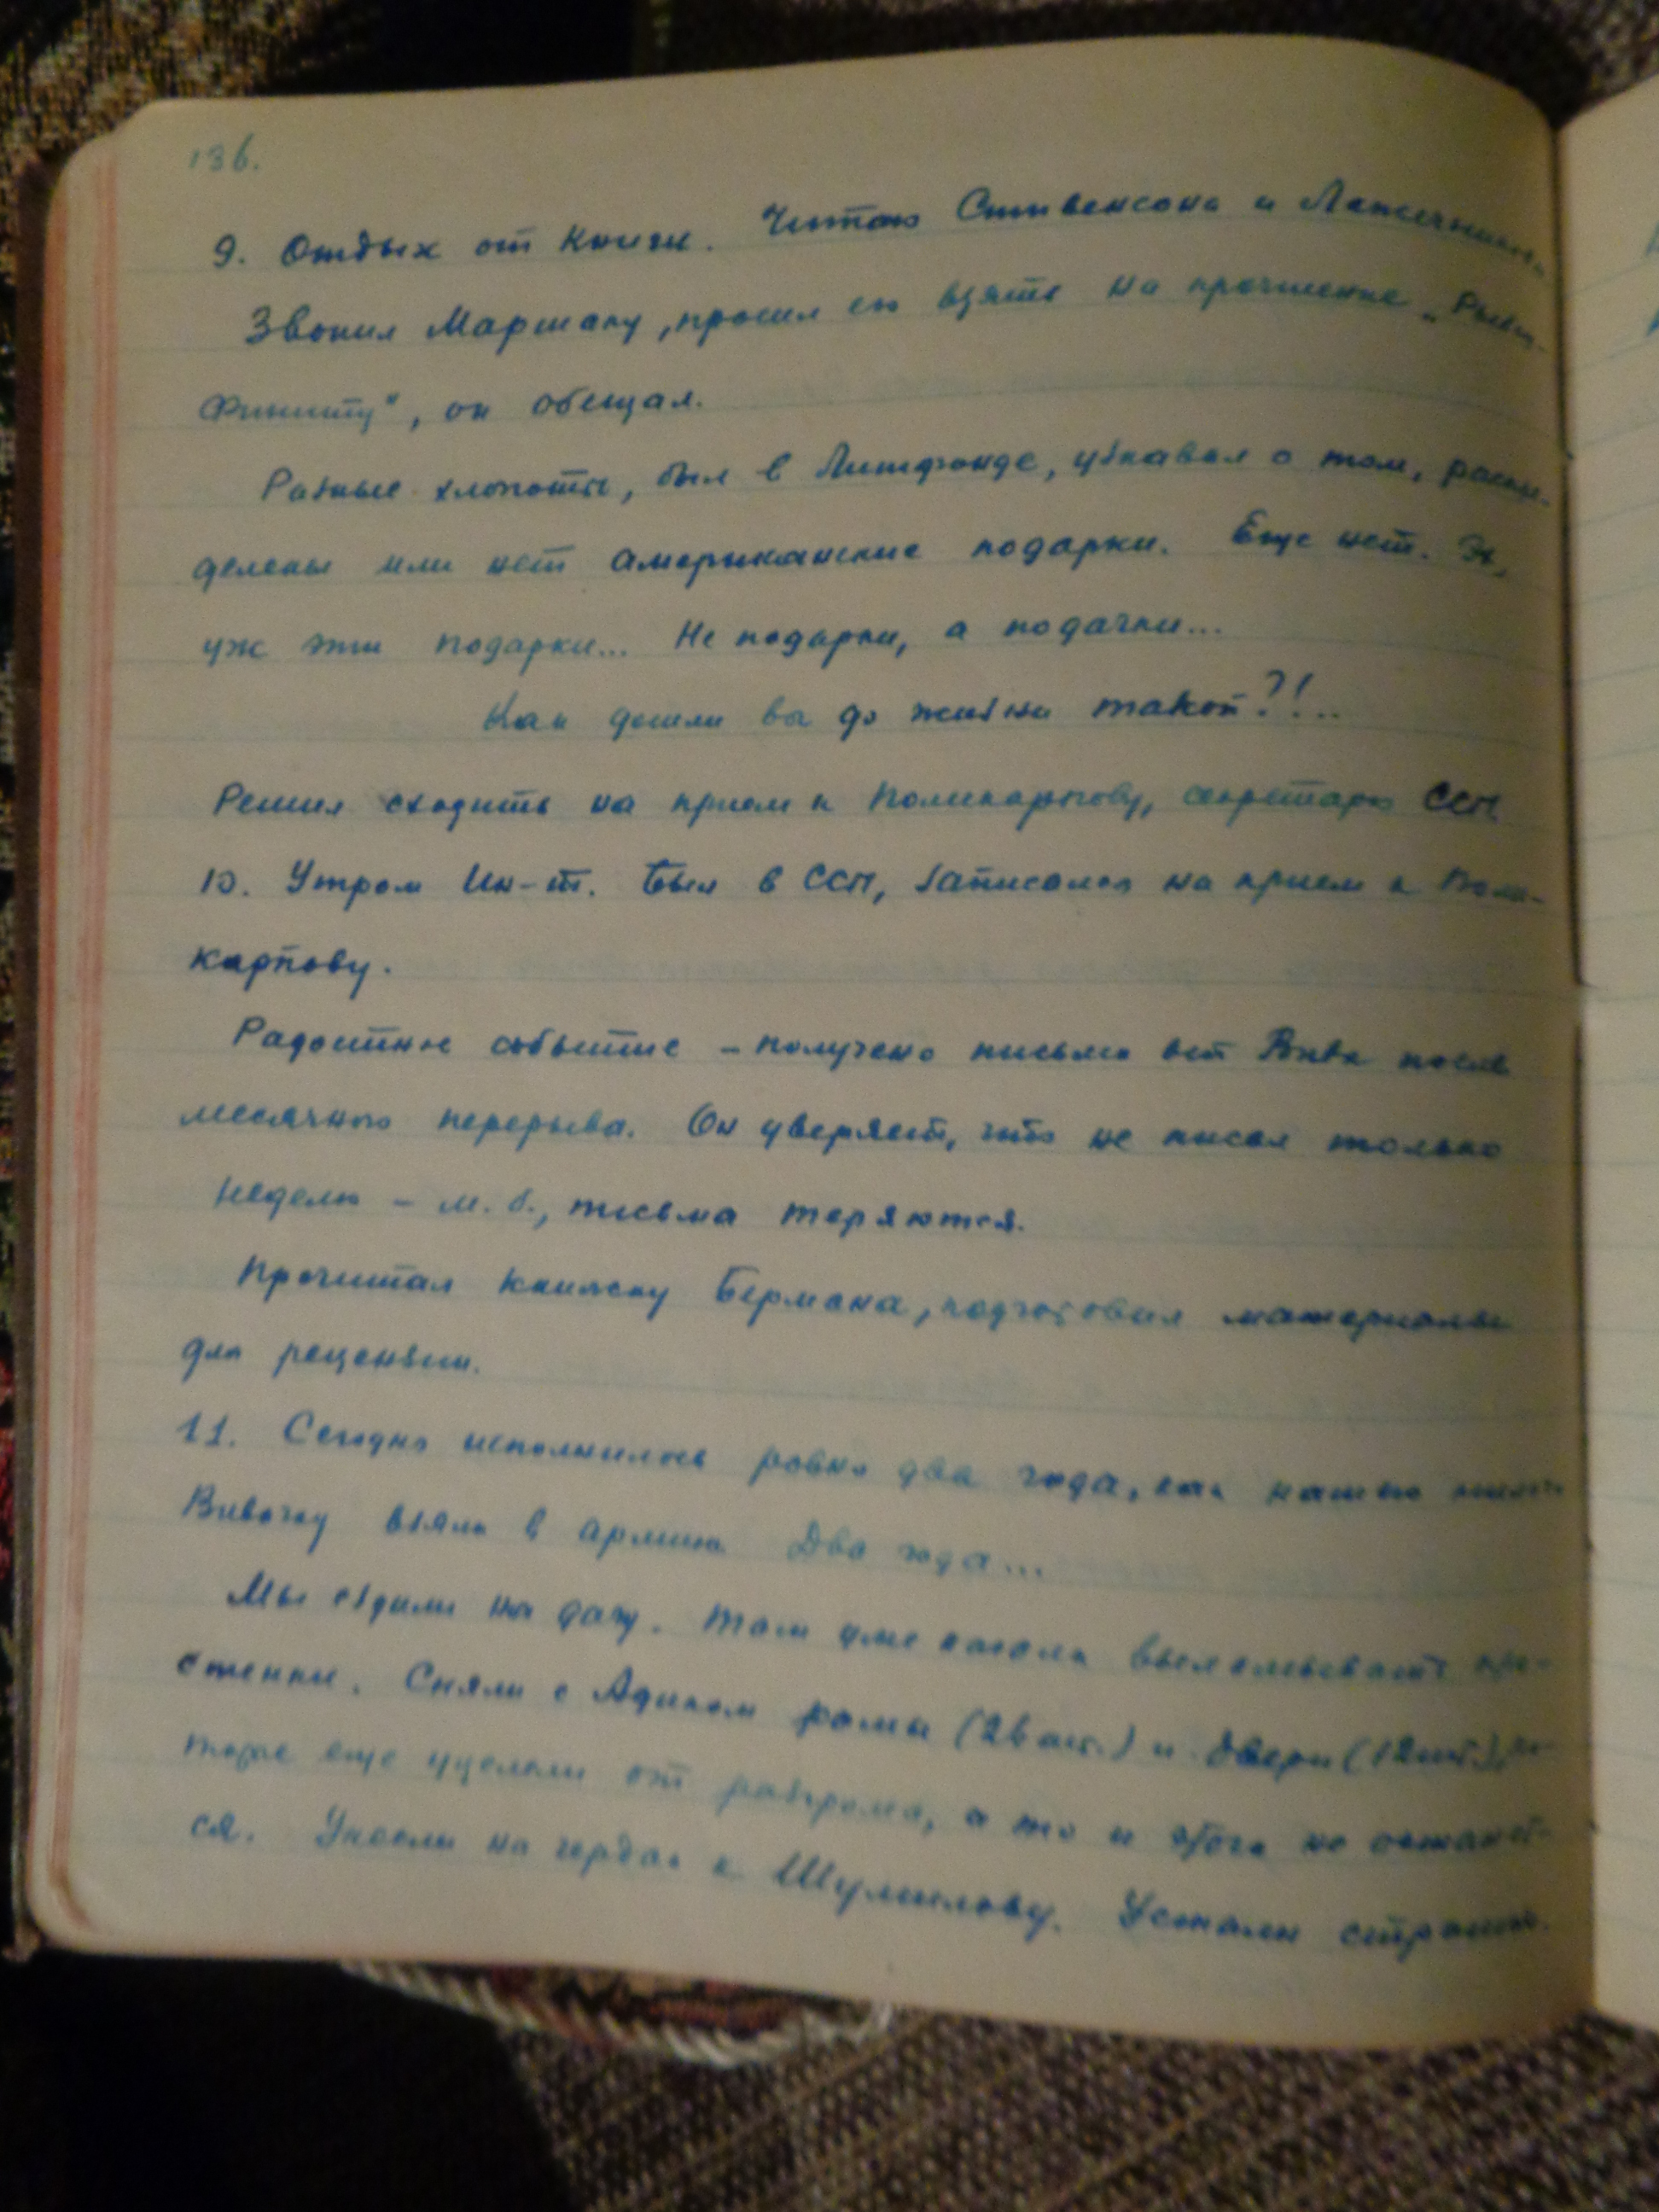 136.
9. Отдых от книги. Читаю Стивенсона и Лажечникова
Звонил Маршаку, просил его взять на прочтение „Рыбку-
Финиту", он обещал.
Разные хлопоты, был в Литфонде, узнавал о том, распре-
делены или нет американские подарки. Еще нет. Эх,
уж эти подарки... Не подарки, а подачки...
Как дошли вы до жизни такой?!..
Решил сходить на прием к Поликарпову, секретарю ССП.
10. Утром Ин-т. Был в ССП, записался на прием к Поли-
карпову.
Радостное событие – получено письмо от Вивы после
месячного перерыва. Он уверяет, что не писал только
неделю – м. б., письма теряются.
Прочитал книжку Бермана, подготовил материалы
для рецензии.
11. Сегодня исполнилось ровно два года, как нашего милого
Вивочку взяли в армию. Два года...
Мы ездили на дачу. Там уже начали выламывать про-
стенки. Сняли с Адиком рамы (26 шт.) и двери (12 шт.), ко-
торые еще уцелели от разгрома, а то и этого не останет-
ся. Унесли на чердак к Шумилову. Устали страшно.